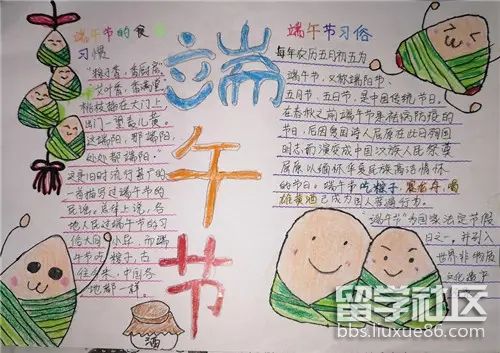 端午节的食
习惯
"粽子香,香厨房。
艾叶香,香满堂。
桃枝插在大门上,
出门一望麦儿黄。
这端阳,那端阳,
处处都端阳。"
这是旧时流行甚广的
一首描写过端午节的
民谣。总体上说,各
地人民过端午节的习
俗大同小异,而端
午节吃粽子,古
往今来,中国各
地都一样。
端
午
节
酒
端午节习俗
每年农历五月初五为
端午节,又称端阳节、
五月节、五日节,是中国传统节日。
在春秋之前端午节是祛病防疫的
节日,后因爱国诗人屈原在此日殉国
明志而演变成中国汉族人民祭奠
屈原以缅怀华夏民族高洁情怀
的节日。端午节吃粽子,赛龙舟,喝
雄黄酒已成为国人普遍行事。
"端午节"为国家法定节假
日之一,并列入
世界非物质
文化遗产
留学社区
bbs.liuxue86.com